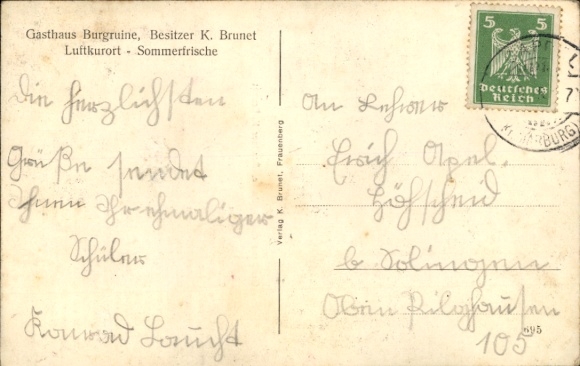 Gasthaus Burgruine, Besitzer K. Brunet
Luftkurort - Sommerfrische
die herzlichsten
Grüße sendet
Ihnen Ihr ehmaliger
Schüler
Konrad Laucht
Verlag K. Brunet, Frauenberg
5 5
Deutsches
Reich
An Lehrer
Erich Apel
Höhscheid
b Solingen
105
695